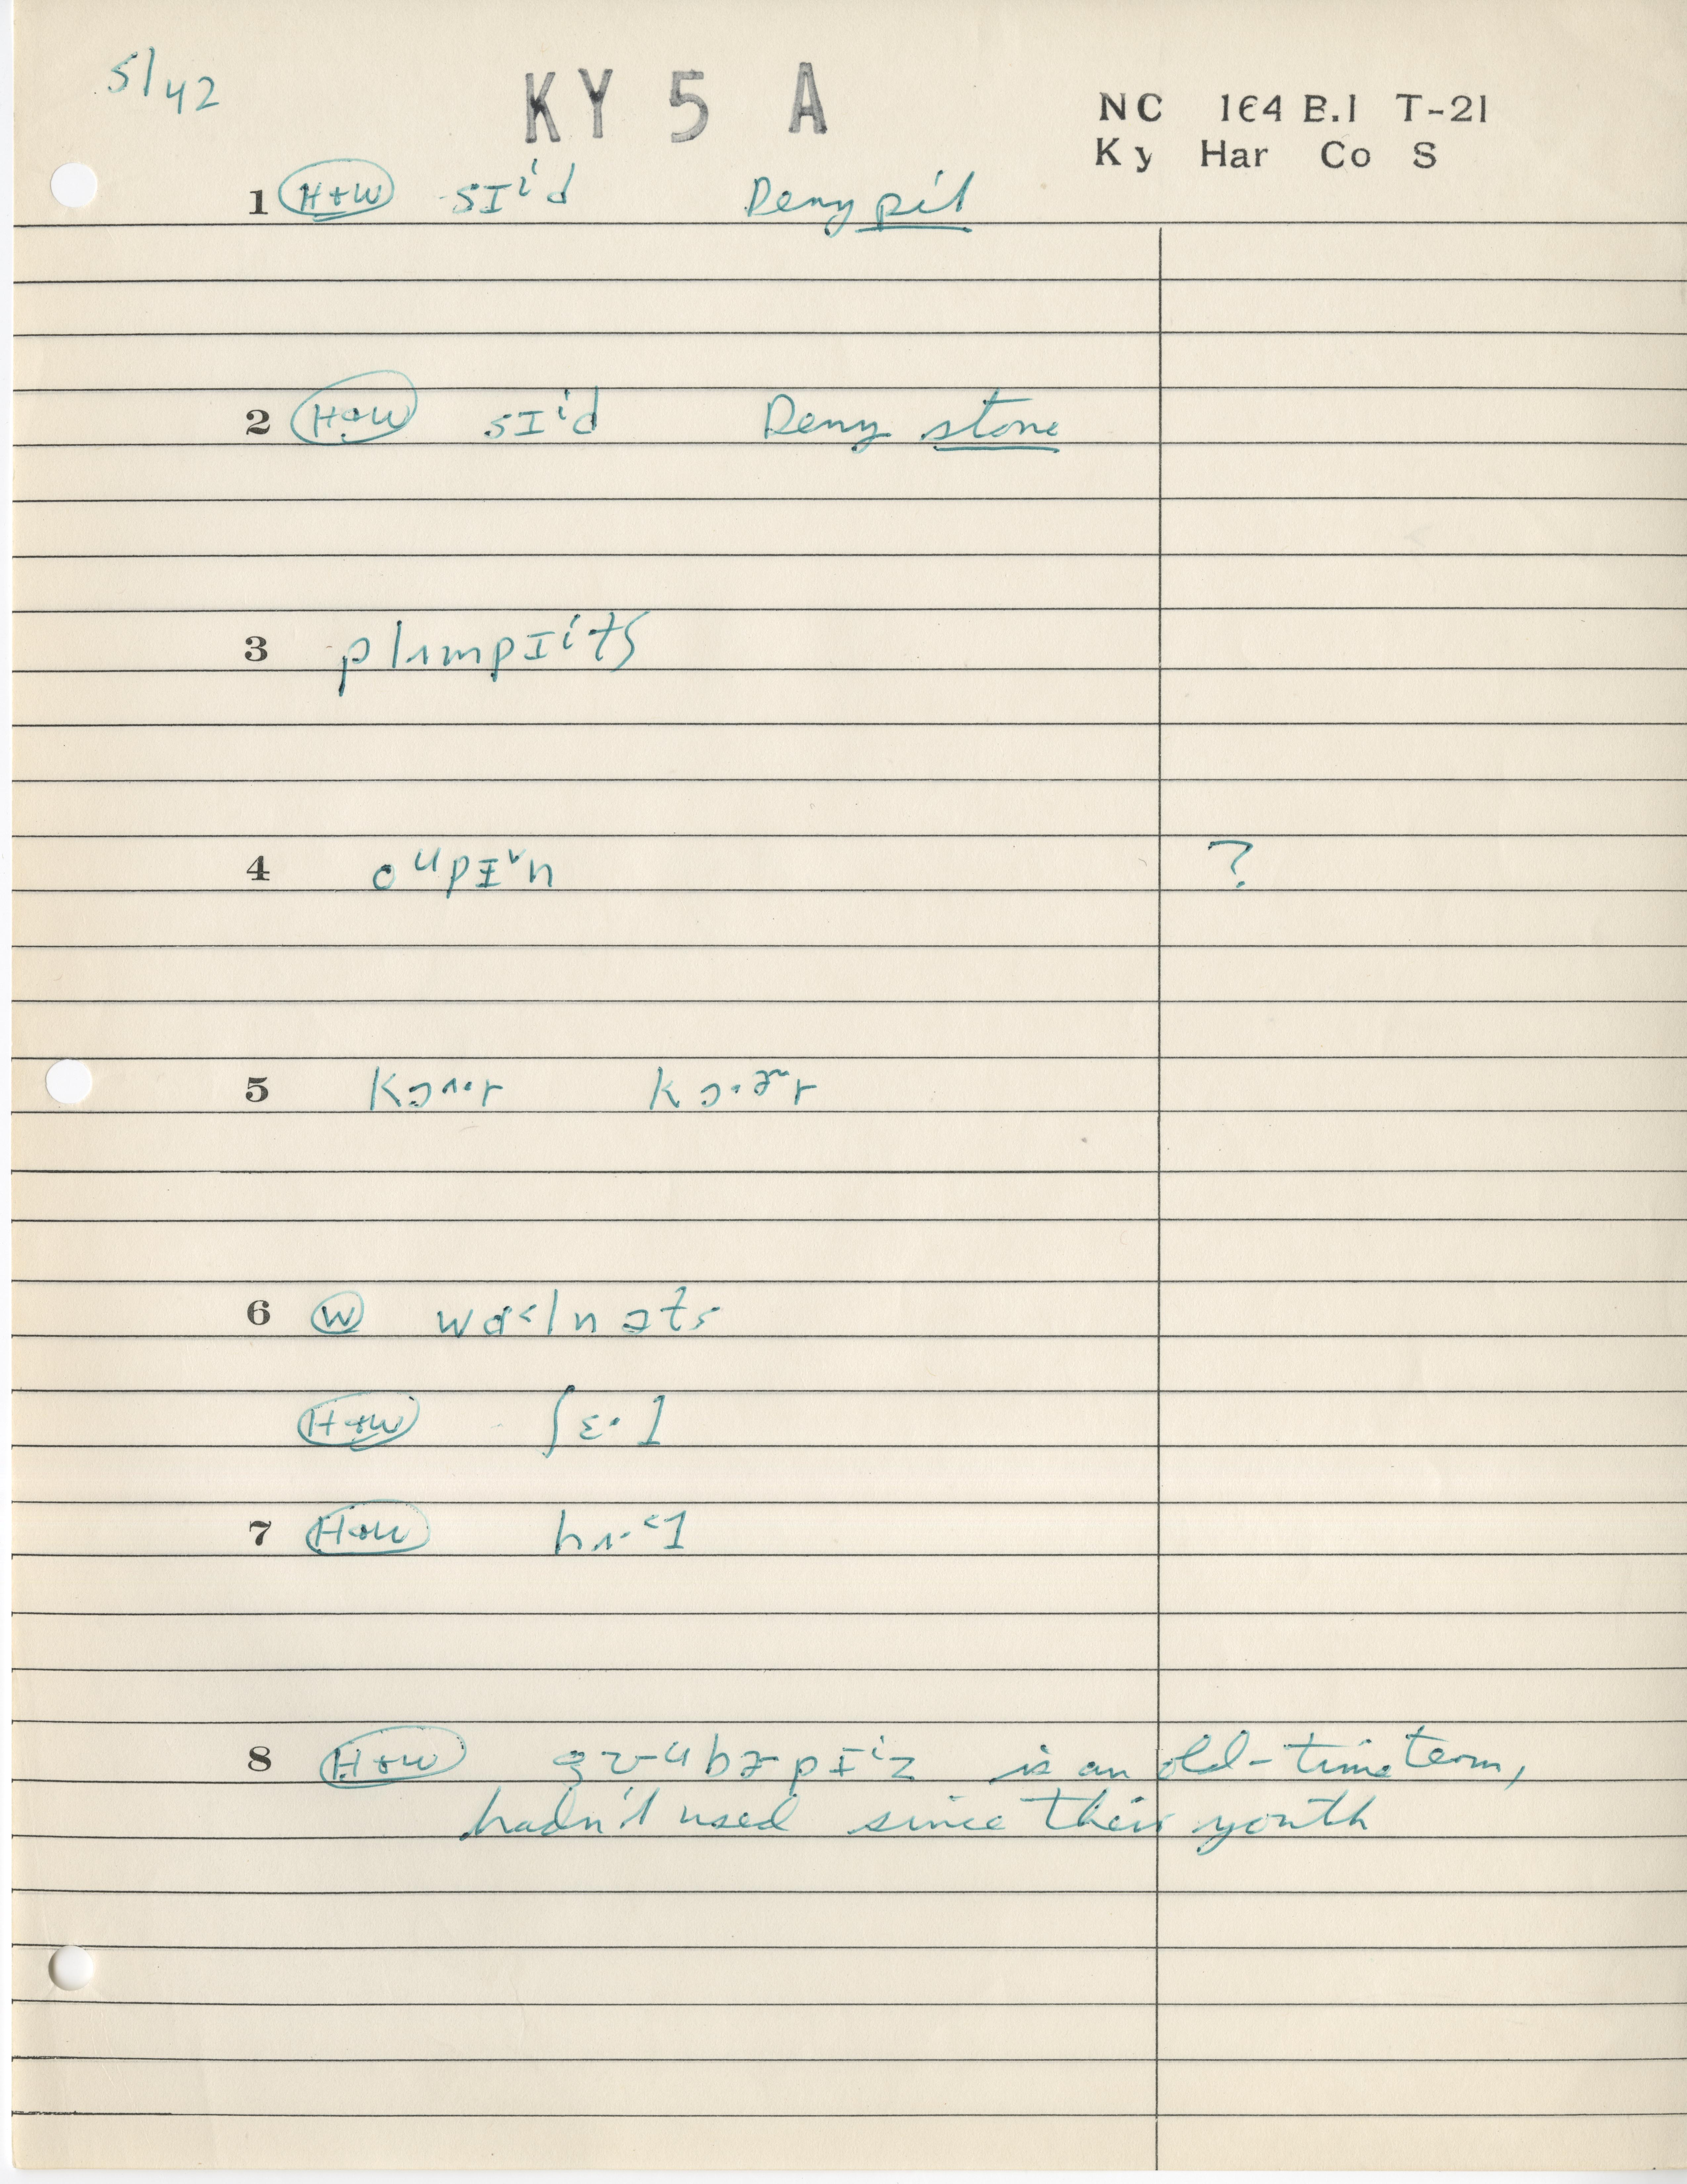 5/42
KY 5 A
NC 164 B.1 T-21
Ky Har Co S
1 H+W sɪⁱd Deny pit
2 H+W sɪⁱd Deny stone
3 plʌmpɪⁱts
4 oᵘpɪᵛn ?
5 kɔʌ·r kɔ·ɚr
6 W wɑ˂lnəts
H+W ʃɛ·l
7 H+W hʌ·˂l
8 H+W is an old-time term,
hadn't used since their youth